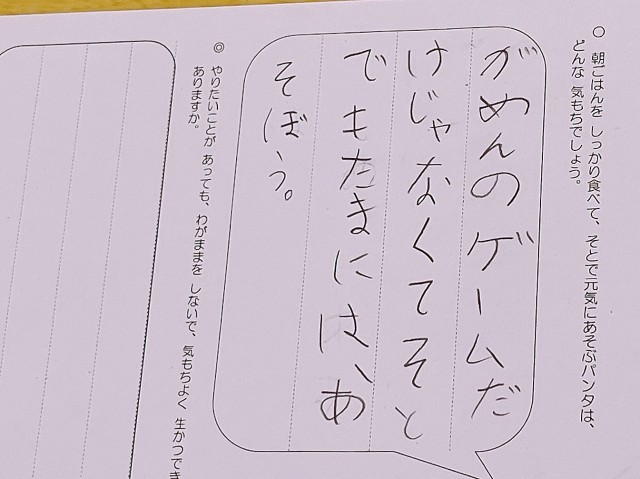 ○ 朝ごはんを しっかり食べて、そとで元気にあそぶパンタは、
どんな 気もちでしょう。
がめんのゲームだ
けじゃなくてそと
でもたまには、あ
そぼう。
◎ やりたいことが あっても、わがままを しないで、気もちよく 生かつでき
ありますか。